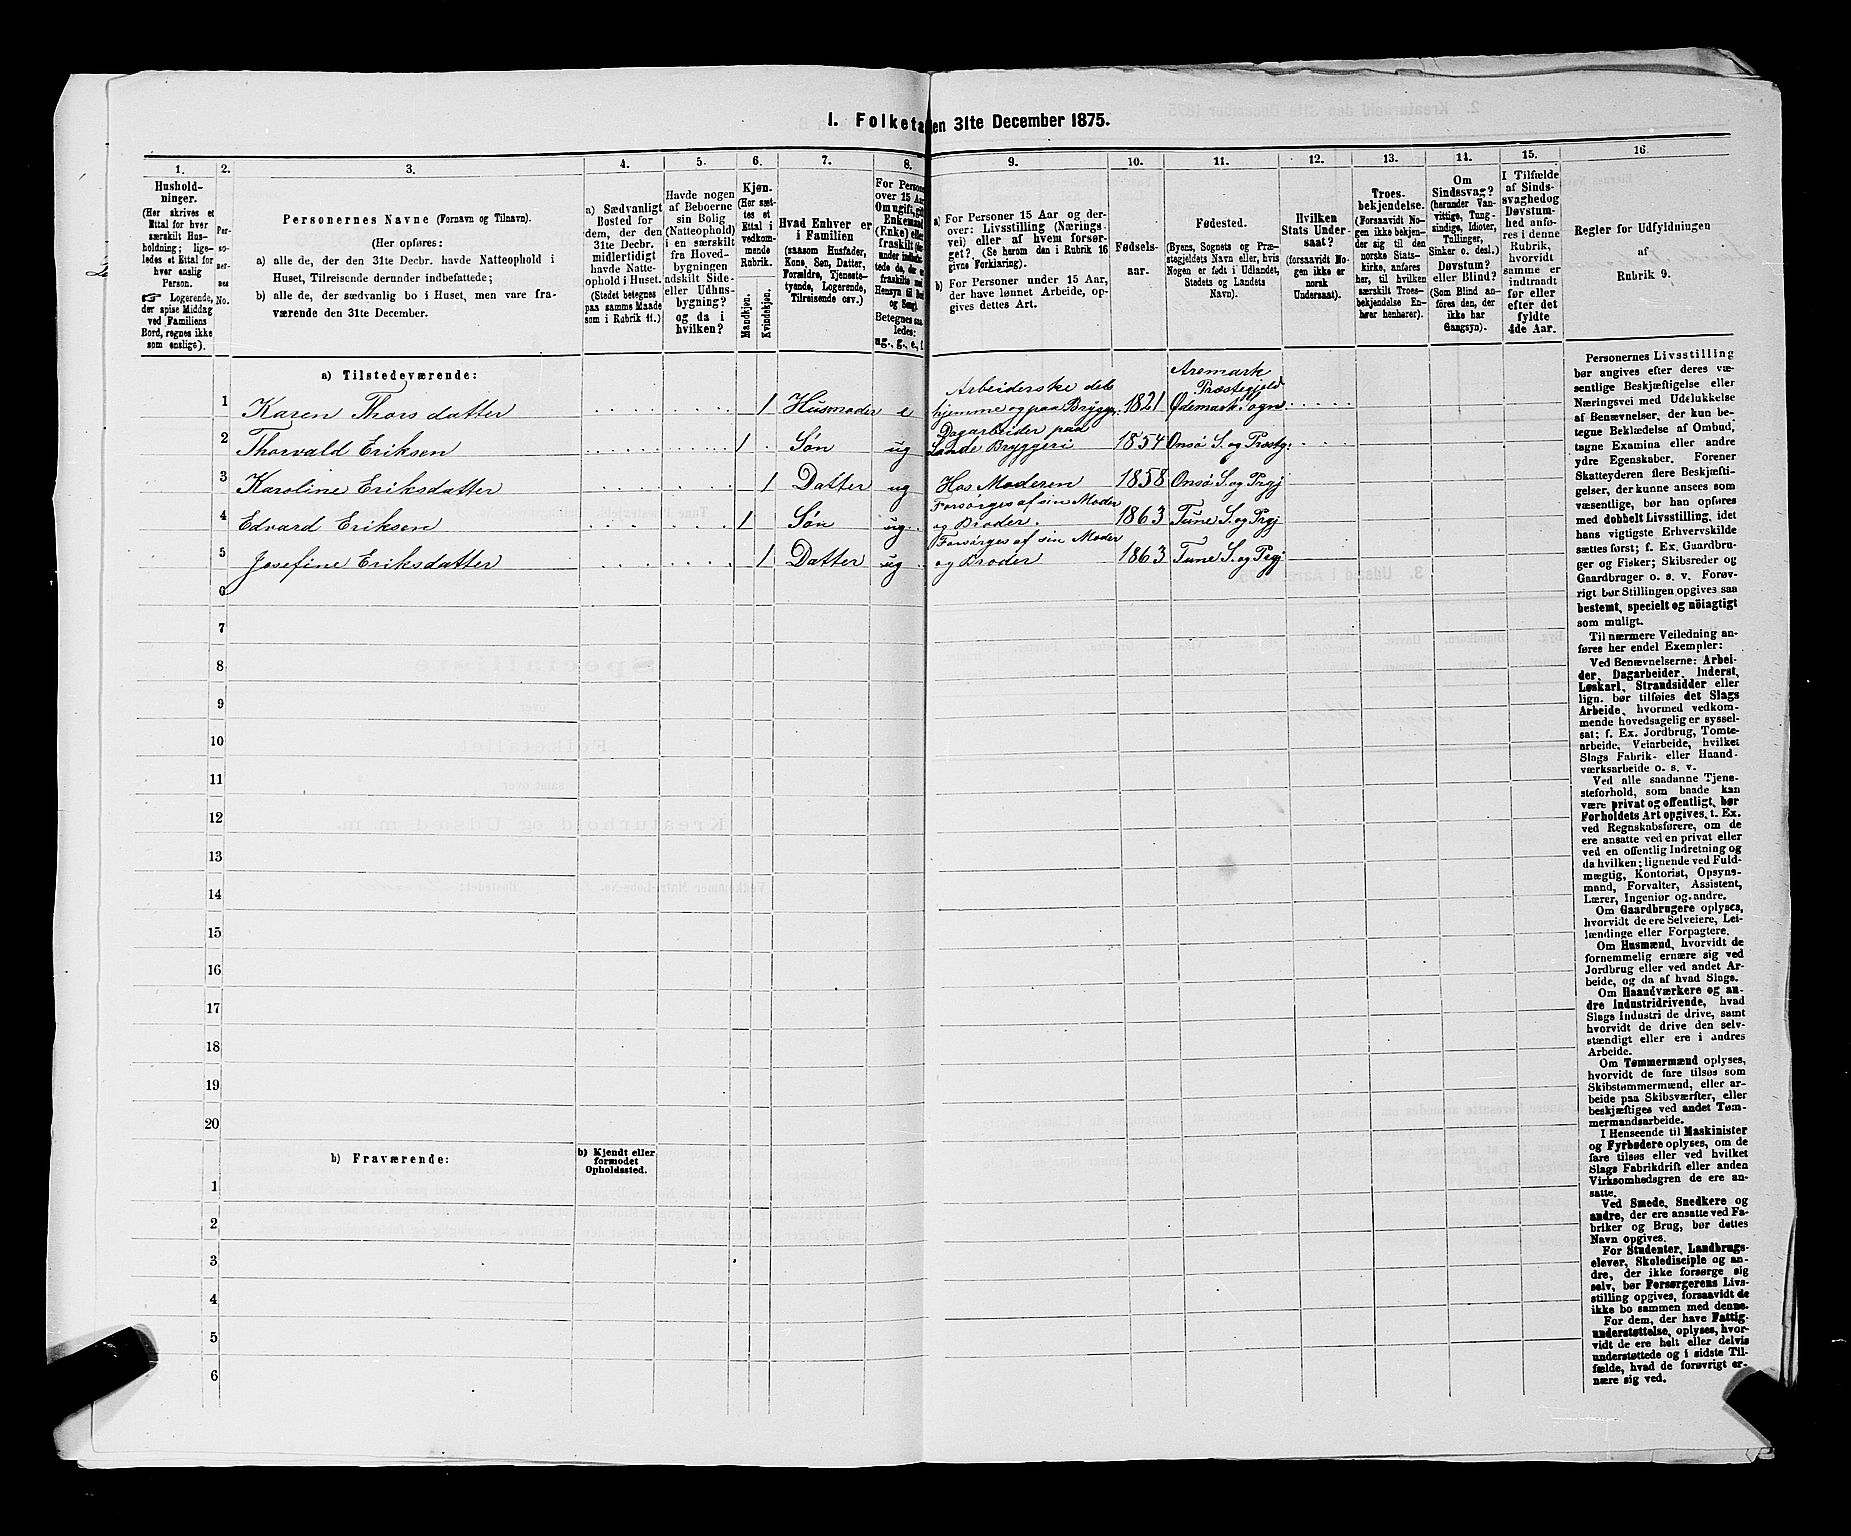 I. Folketa en 31te December 1875.
1. 2. 3. 4. 5. 6. 7. 8. 9. 10. 11. 12. 13. 14. 15. 16.
Hushold-
ninger.
(Her skrives et
Ettal for hver
særskilt Hus-
holdning; lige-
ledes et Ettal for
hver enslig
Person.
Logerende,
der spise Middag
ved Familiens
Bord, regnes ikke
som enslige).
Per-
so-
ner-
nes
No.
Personernes Navne (Fornavn og Tilnavn).
(Her opføres:
a) alle de, der den 31te Decbr. havde Natteophold i
Huset, Tilreisende derunder indbefattede;
b) alle de, der sædvanlig bo i Huset, men vare fra-
værende den 31te December.
a) Sædvanligt
Bosted for
dem, der den
31te Decbr.
midlertidigt
havde Natte-
ophold i Huset.
(Stedet betegnes
paa samme Maade
som i Rubrik 11.)
Havde nogen
af Beboerne
sin Bolig
(Natteophold)
i en særskilt
fra Hoved-
bygningen
adskilt Side-
eller Udhus-
bygning?
og da i
hvilken?
Kjøn.
(Her sæt-
tes et
Ettal i
vedkom-
mende
Rubrik.
Mandkjøn.
Kvindekjøn.
Hvad Enhver er
i Familien
(saasom Husfader,
Kone, Søn, Datter,
Forældre, Tjeneste-
tyende, Logerende,
Tilreisende osv.)
For Person
over 15 Aar
Om ugift, gift
Enkemand
(Enke) elle
fraskilt
Betegnes saa
ledes:
ug., g., e., f.
a) For Personer 15 Aar og der-
over: Livsstilling (Nærings-
vei) eller af hvem forsør-
get?. (Se herom den i Rubrik 16
givne Forklaring).
b) For Personer under 15 Aar,
der have lønnet Arbeide, op-
gives dettes Art.
Fødsels-
aar.
Fødested.
(Byens, Sognets og Præ-
stegjeldets Navn eller, hvis
Nogen er født i Udlandet,
Stedets og Landets
Navn).
Hvilken
Stats Under-
saat?
(forsaavidt No-
gen ikke er
norsk
Undersaat).
Troes-
bekjendelse.
(Forsaavidt No-
gen ikke bekjen-
der sig til den
norske Stats-
kirke, anføres
her, til hvilken
særskilt Troes-
bekjendelse En-
hver henhører).
Om
Sindssvag?
(herunder Van-
vittige, Tung-
sindige, Idioter,
Tullinger,
Sinker o. desl.)
Døvstum?
eller Blind?
(Som Blind an-
føres den, der
ikke har
Gangsyn).
I Tilfælde
af Sinds-
svaghed og
Døvstum-
hed anfø-
res i denne
Rubrik,
hvorvidt
samme er
indtraadt
før eller
efter det
fyldte
4de Aar.
Regler for Udfyldningen
af
Rubrik 9.
a) Tilstedeværende:
1 Karen Thorsdatter 1 Husmoder e Arbeiderske dels hjemme og paa Brygge. 1821 Aremark Præstegjeld Ødemark Sogn
2 Thorvald Eriksen 1 Søn ug Dagarbeider paa Sande Bryggeri 1854 Onsø S. og Præstg:
3 Karoline Eriksdatter 1 Datter ug Hos Moderen 1858 Onsø S. og Prgj
4 Edvard Eriksen 1 Søn ug Forsørges af sin Moder og Broder. 1863 Tune S. og Prgj
5 Josefine Eriksdatter 1 Datter ug Forsørges af sin Moder og Broder 1863 Tune S. og Prgj
6
7
8
9
10
11
12
13
14
15
16
17
18
19
20
b) Fraværende:
b) Kjendt eller
formodet
Opholdssted.
1
2
3
4
5
6
Personernes Livsstilling
bør angives efter deres væ-
sentlige Beskjæftigelse eller
Næringsvei med Udelukkelse
af Benævnelser, der kun be-
tegne Beklædelse af Ombud,
tagne Examina eller andre
ydre Egenskaber. Forener
Skatteyderen flere Beskjæfti-
gelser, der kunne ansees som
væsentlige, bør han opføres
med dobbelt Livsstilling, idet
hans vigtigste Erhvervskilde
sættes først; f. Ex. Gaardbru-
ger og Fisker; Skibsreder og
Gaardbruger o. s. v. Forøv-
rigt bør Stillingen opgives saa
bestemt, specielt og nöiagtigt
som muligt.
Til nærmere Veiledning an-
føres her endel Exempler:
Ved Benævnelserne: Arbei-
der, Dagarbeider, Inderst,
Løskarl, Strandsidder eller
lign. bør tilføies det Slags
Arbeide, hvormed vedkom-
mende hovedsagelig er syssel-
sat; f. Ex. Jordbrug, Tomte-
arbeide, Veiarbeide, hvilket
Slags Fabrik- eller Haand-
værksarbeide o. s. v.
Ved alle saadanne Tjene-
steforhold, som baade kan
være privat og offentligt, bør
Forholdets Art opgives, t. Ex.
ved Regnskabsførere, om de
ere ansatte ved en privat eller
ved en offentlig Indretning og
da hvilken; lignende ved Fuld-
mægtig, Kontorist, Opsyns-
mand, Forvalter, Assistent,
Lærer, Ingeniør og andre.
Om Gaardbrugere oplyses,
hvorvidt de ere Selveiere, Lei-
lændinge eller Forpagtere.
Om Husmænd, hvorvidt de
fornemmelig ernære sig ved
Jordbrug eller ved andet Ar-
beide, og da af hvad Slags.
Om Haandværkere og an-
dre Industridrivende, hvad
Slags Industri de drive, samt
hvorvidt de drive den selv-
stændigt eller ere i andres
Arbeide.
Om Tømmermænd oplyses,
hvorvidt de fare tilsøs som
Skibstømmermænd, eller ar-
beide paa Skibsværfter, eller
beskjæftiges ved andet Tøm-
mermandsarbeide.
I Henseende til Maskinister
og Fyrbødere oplyses, om de
fare tilsøs eller ved hvilket
Slags Fabrikdrift eller anden
Virksomhedsgren de ere an-
satte.
Ved Smede, Snedkere og
andre, der ere ansatte ved Fa-
briker og Brug, bør dettes
Navn opgives.
For Studenter, Landbrugs-
elever, Skoledisciple og an-
dre, der ikke forsørge sig
selv, bør Forsørgerens Livs-
stilling opgives, forsaavidt de
ikke bo sammen med denne.
For dem, der have Fattig-
understøttelse, oplyses, hvor-
vidt de ere helt eller delvis
understøttede og i sidste Til-
fælde, hvad de forøvrigt er-
nære sig ved.